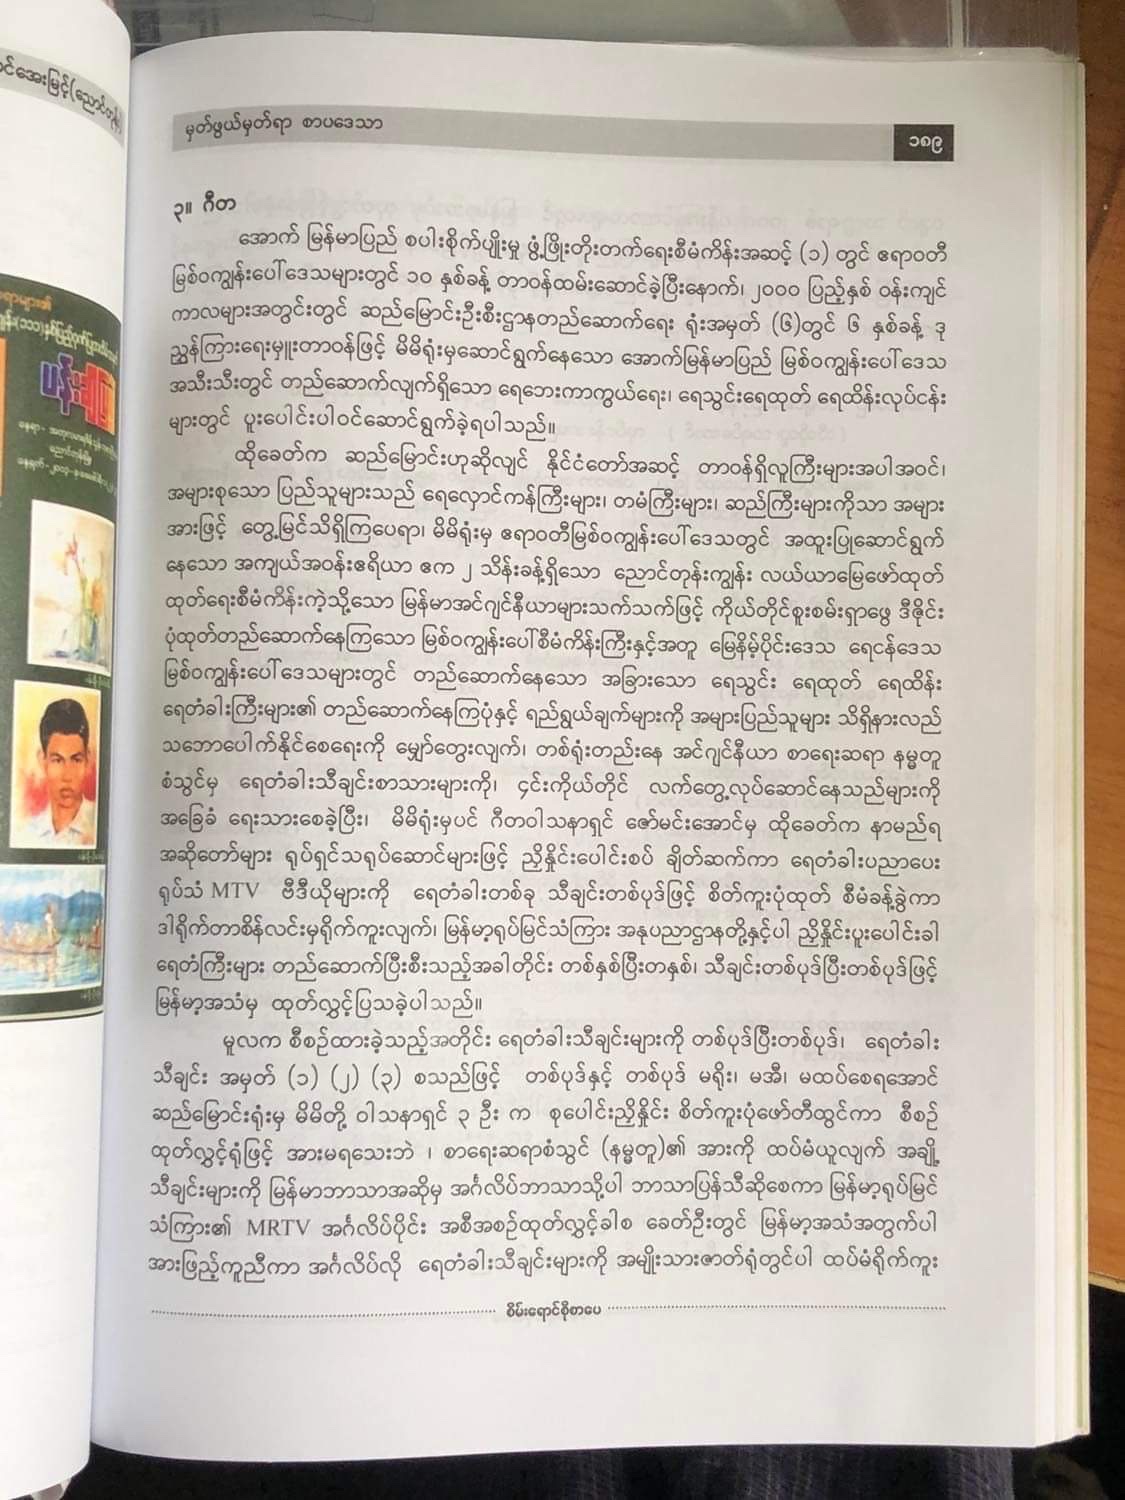 င်အေးမြင့်(ညောင်တုန်း)
ရာများ၏
ပန်းချီပြ
မှတ်ဖွယ်မှတ်ရာ စာပဒေသာ
၁၈၉
၃။ ဂီတ
အောက် မြန်မာပြည် စပါးစိုက်ပျိုးမှု ဖွံ့ဖြိုးတိုးတက်ရေးစီမံကိန်းအဆင့် (၁) တွင် ဧရာဝတီ
မြစ်ဝကျွန်းပေါ်ဒေသများတွင် ၁၀ နှစ်ခန့် တာဝန်ထမ်းဆောင်ခဲ့ပြီးနောက်၊ ၂၀၀၀ ပြည့်နှစ် ဝန်းကျင်
ကာလများအတွင်းတွင် ဆည်မြောင်းဦးစီးဌာနတည်ဆောက်ရေး ရုံးအမှတ် (၆)တွင် ၆ နှစ်ခန့် ဒု
ညွှန်ကြားရေးမှူးတာဝန်ဖြင့် မိမိရုံးမှဆောင်ရွက်နေသော အောက်မြန်မာပြည် မြစ်ဝကျွန်းပေါ်ဒေသ
အသီးသီးတွင် တည်ဆောက်လျက်ရှိသော ရေဘေးကာကွယ်ရေး၊ ရေသွင်းရေထုတ် ရေထိန်းလုပ်ငန်း
များတွင် ပူးပေါင်းပါဝင်ဆောင်ရွက်ခဲ့ရပါသည်။
ထိုခေတ်က ဆည်မြောင်းဟုဆိုလျင် နိုင်ငံတော်အဆင့် တာဝန်ရှိလူကြီးများအပါအဝင်၊
အများစုသော ပြည်သူများသည် ရေလှောင်ကန်ကြီးများ၊ တမံကြီးများ၊ ဆည်ကြီးများကိုသာ အများ
အားဖြင့် တွေ့မြင်သိရှိကြပေရာ၊ မိမိရုံးမှ ဧရာဝတီမြစ်ဝကျွန်းပေါ်ဒေသတွင် အထူးပြုဆောင်ရွက်
နေသော အကျယ်အဝန်းဧရိယာ ဧက ၂ သိန်းခန့်ရှိသော ညောင်တုန်းကျွန်း လယ်ယာမြေဖော်ထုတ်
ထုတ်ရေးစီမံကိန်းကဲ့သို့သော မြန်မာအင်ဂျင်နီယာများသက်သက်ဖြင့် ကိုယ်တိုင်စူးစမ်းရှာဖွေ ဒီဇိုင်း
ပုံထုတ်တည်ဆောက်နေကြသော မြစ်ဝကျွန်းပေါ်စီမံကိန်းကြီးနှင့်အတူ မြေနိမ့်ပိုင်းဒေသ ရေငန်ဒေသ
မြစ်ဝကျွန်းပေါ်ဒေသများတွင် တည်ဆောက်နေသော အခြားသော ရေသွင်း ရေထုတ် ရေထိန်း
ရေတံခါးကြီးများ၏ တည်ဆောက်နေကြပုံနှင့် ရည်ရွယ်ချက်များကို အများပြည်သူများ သိရှိနားလည်
သဘောပေါက်နိုင်စေရေးကို မျှော်တွေးလျက်၊ တစ်ရုံးတည်းနေ အင်ဂျင်နီယာ စာရေးဆရာ နမ္မတူ
စံသွင်မှ ရေတံခါးသီချင်းစာသားများကို၊ ၄င်းကိုယ်တိုင် လက်တွေ့လုပ်ဆောင်နေသည်များကို
အခြေခံ ရေးသားစေခဲ့ပြီး၊ မိမိရုံးမှပင် ဂီတဝါသနာရှင် ဇော်မင်းအောင်မှ ထိုခေတ်က နာမည်ရ
အဆိုတော်များ ရုပ်ရှင်သရုပ်ဆောင်များဖြင့် ညှိနှိုင်းပေါင်းစပ် ချိတ်ဆက်ကာ ရေတံခါးပညာပေး
ရုပ်သံ MTV ဗီဒီယိုများကို ရေတံခါးတစ်ခု သီချင်းတစ်ပုဒ်ဖြင့် စိတ်ကူးပုံထုတ် စီမံခန့်ခွဲကာ
ဒါရိုက်တာစိန်လင်းမှရိုက်ကူးလျက်၊ မြန်မာ့ရုပ်မြင်သံကြား အနုပညာဌာနတို့နှင့်ပါ ညှိနှိုင်းပူးပေါင်းခါ
ရေတံကြီးများ တည်ဆောက်ပြီးစီးသည့်အခါတိုင်း တစ်နှစ်ပြီးတနှစ်၊ သီချင်းတစ်ပုဒ်ပြီးတစ်ပုဒ်ဖြင့်
မြန်မာ့အသံမှ ထုတ်လွှင့်ပြသခဲ့ပါသည်။
မူလက စီစဉ်ထားခဲ့သည့်အတိုင်း ရေတံခါးသီချင်းများကို တစ်ပုဒ်ပြီးတစ်ပုဒ်၊ ရေတံခါး
သီချင်း အမှတ် (၁) (၂) (၃) စသည်ဖြင့် တစ်ပုဒ်နှင့် တစ်ပုဒ် မရိုး၊ မအီ၊ မထပ်စေရအောင်
ဆည်မြောင်းရုံးမှ မိမိတို့ ဝါသနာရှင် ၃ ဦး က စုပေါင်းညှိနှိုင်း စိတ်ကူးပုံဖော်တီထွင်ကာ စီစဉ်
ထုတ်လွှင့်ရုံဖြင့် အားမရသေးဘဲ ၊ စာရေးဆရာစံသွင် (နမ္မတူ)၏ အားကို ထပ်မံယူလျက် အချို့
သီချင်းများကို မြန်မာဘာသာအဆိုမှ အင်္ဂလိပ်ဘာသာသို့ပါ ဘာသာပြန်သီဆိုစေကာ မြန်မာ့ရုပ်မြင်
သံကြား၏ MRTV အင်္ဂလိပ်ပိုင်း အစီအစဉ်ထုတ်လွှင့်ခါစ ခေတ်ဦးတွင် မြန်မာ့အသံအတွက်ပါ
အားဖြည့်ကူညီကာ အင်္ဂလိပ်လို ရေတံခါးသီချင်းများကို အမျိုးသားဇာတ်ရုံတွင်ပါ ထပ်မံရိုက်ကူး
စိမ်းရောင်စိုစာပေ